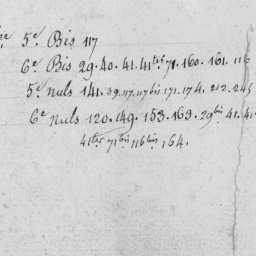 5e Bis 117
6e Bis 29. 40. 41. 41ter 71. 160. 161. 116
5e nuls 141. 39. 117. 117bis 171. 174. 212. 245
6e nuls 120. 149. 153. 163. 29bis 41. 41.
41ter 71bis 116bis 164.